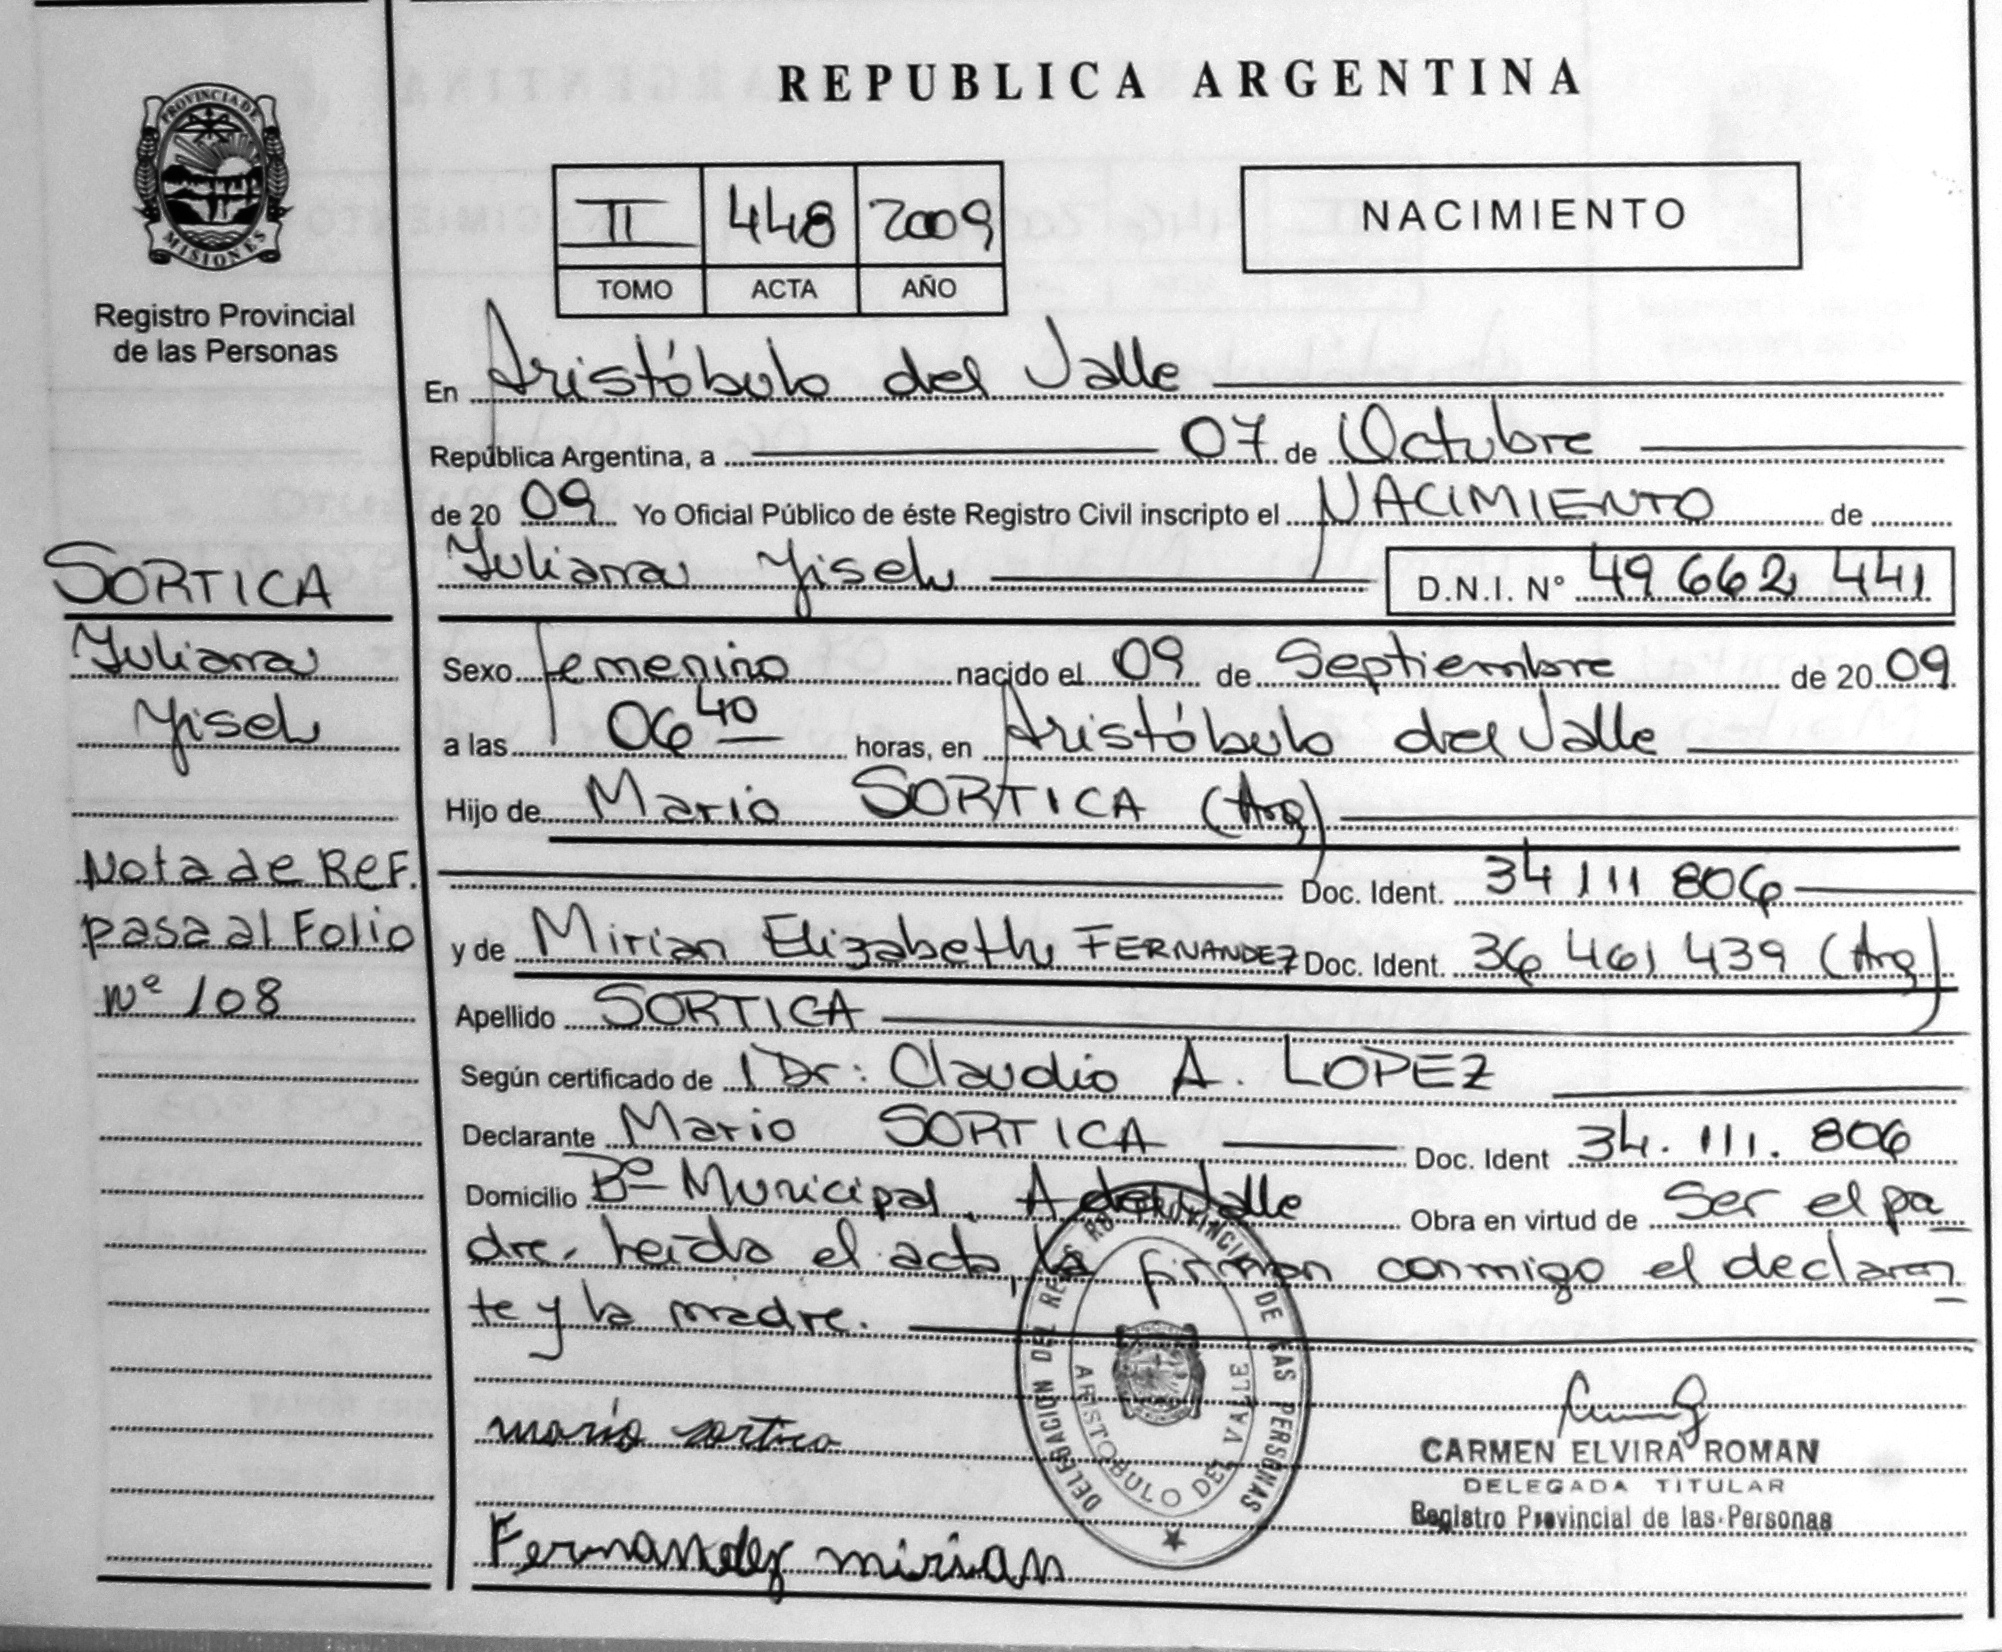 REPUBLICA ARGENTINA
PROVINCIA DE
MISIONES
Registro Provincial
de las Personas
II 448 2009
TOMO ACTA AÑO
NACIMIENTO
En Aristóbulo del Valle
República Argentina, a 07 de Octubre
de 20 09 Yo Oficial Público de éste Registro Civil inscripto el NACIMIENTO de
Yuliana Yisel D.N.I. Nº 49 662 441
SORTICA
Yuliana
Yisel
Sexo femenino nacido el 09 de Septiembre de 20 09
a las 06 40 horas, en Aristóbulo del Valle
Hijo de Mario SORTICA (Arg)
Doc. Ident. 34 111 806
y de Mirian Elizabeth FERNANDEZ Doc. Ident. 36 461 439 (Arg)
Nota de Ref.
pasa al Folio
nº 108
Apellido SORTICA
Según certificado de Dr: Claudio A. LOPEZ
Declarante Mario SORTICA Doc. Ident 34.111.806
Domicilio Bº Municipal, A del Valle Obra en virtud de Ser el pa
dre. Leida el acta, la firman conmigo el declaran
te y la madre.
DELEGACION DEL REG. PROVINCIAL DE LAS PERSONAS
ARISTOBULO DEL VALLE
mario sortica
CARMEN ELVIRA ROMAN
DELEGADA TITULAR
Registro Provincial de las Personas
Fernandez mirian